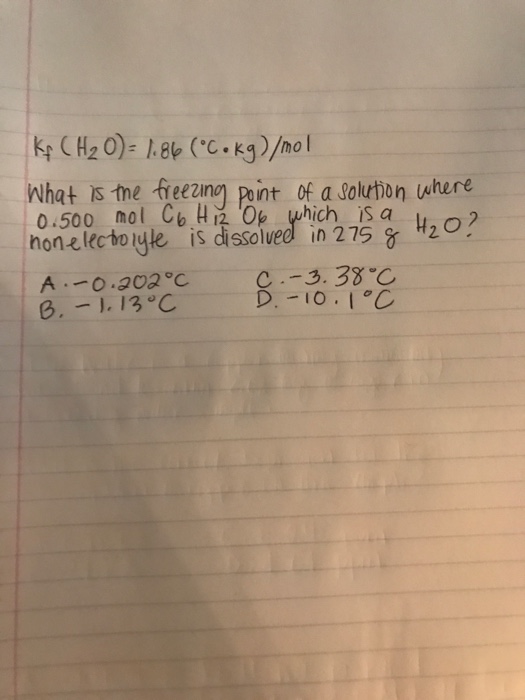 Kf (H2O) = 1.86 (°C•kg)/mol
What is the freezing point of a solution where
0.500 mol C6 H12 O6 which is a
nonelectrolyte is dissolved in 275 g H2O?
A. -0.202°C C. -3.38°C
B. -1.13°C D. -10.1°C